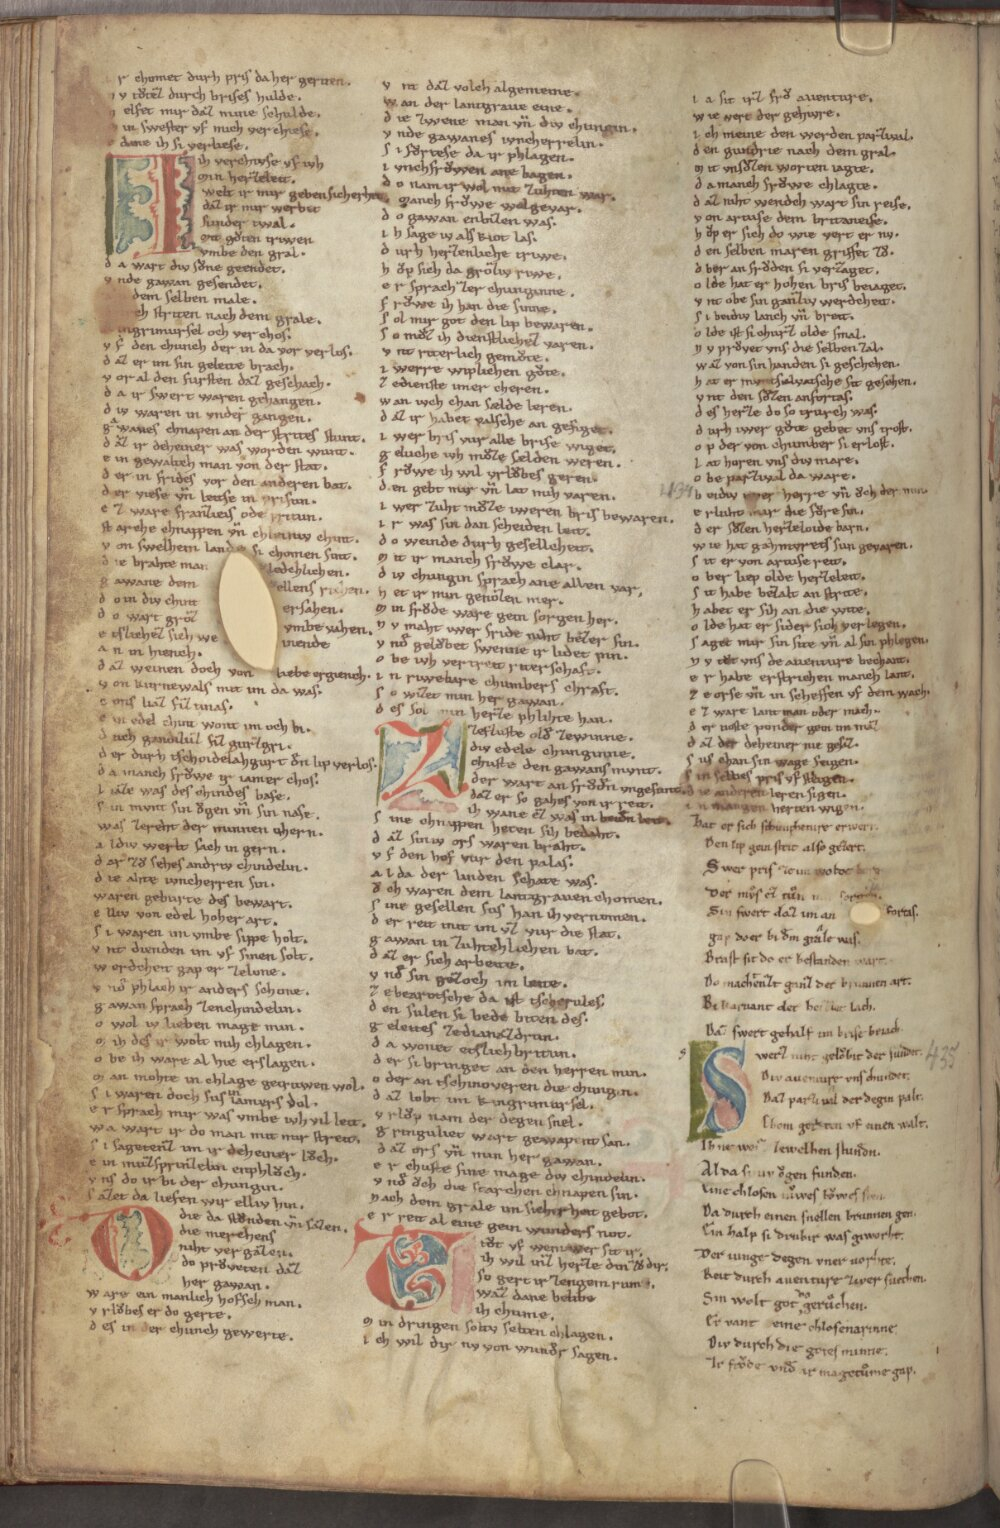 r chomet durh pris da her geriten.
n v tôtez durch brises hulde.
n elset mir daz mine schulde.
m in swester vf mich verchiese.
e dane ih si verliese.
ih verchivse vf wh
min herzeleit.
welt ir mir geben sicherheit
daz ir mir werbet
sunder twal.
mit gôten triwen
vmbe den gral.
d a wart div sône geendet.
v nde gawan gesendet.
dem selben male.
ch striten nach dem grale.
ingrimursel och verchos.
v f den chunch der in da vor verlos.
d az er im sin geleite brach.
v or al den fursten daz geschach.
d a ir swert waren gehangen.
d iv waren in vnder gangen.
g awanes chnapen an der strites stunt.
d az ir deheiner was worden wunt.
e in gewaltich man von der stat.
d er in frides vor den anderen bat.
d er viese vn leitse in prisun.
e z ware franzeis ode pritun.
st arche chnappen vn chleiniv chint.
v on swelhem lande si chomen sint.
d ie brahte man ledechlichen.
g awane dem ellens richen.
d o in div chint ersahen.
d o wart grôz vmbe vahen.
e tslichez sich we
a n in hiench.
d az weinen doch von liebe ergiench.
v on kurnewals mit im da was.
c ons liaz fiz tinas.
e in edel chint wont im och bi.
d uch gandiluz fiz gurzgri.
d er durh tschoidelahgurt den lip verlos.
d a manch frôwe ir iamer chos.
l iaze was des chindes base.
s in mvnt sin ôgen vn sin nase.
was rehte der minnen chern.
a l div werlt sach in gern.
d ar zô sehes andriv chindelin.
d ie ahte ivncherren sin.
waren geburte des bewart.
e lliv von edel hoher art.
s i waren im vmbe sippe holt.
v nt dienden im vf sinen solt.
w erdcheit gap er ze lone.
v nô phlach ir anders schone.
g awan sprach zen chindelin.
o wol iv lieben mage min.
m ih des ir wolt mih chlagen.
o be ih ware al hie erslagen.
m an mohte in chlage getruwen wol.
s i waren doch sus iamers vol.
e r sprach mir was vmbe wh vil leit.
w a wart ir do man mit mir streit.
s i sagetenz im ir deheiner lôch.
e in mûzersprinzelin enphlôch.
v ns do ir bi der chungin.
s azet da liefen wir elliv hin.
die da stônden vn sâzen.
die merchens
niht vergâzen.
do prôveten daz
her gawan.
w are ein manlich hofsch man.
v rlôbes er do gerte.
d es in der chunch gewerte.
v nt daz volch algemeine.
w an der lantgrave eine.
d ie zwene man vn div chungin.
v nde gawanes ivncherrelin.
s i fôrtese da ir phlagen.
i vnchfrôwen ane bagen.
d o nam ir wol mit zuhten war.
manch frôwe wolgevar.
d o gawan enbizen was.
i h sage iv als kiot las.
d urh herzenliche triwe.
h ôp sich da grôziv riwe.
e r sprach zer chunginne.
f rôwe ih han die sinne.
s ol mir got den lip bewaren.
s o môz ih dienstlichez varen.
v nt riterlich gemôte.
i werre wiplichen gôte.
z e dienste imer cheren.
w an wch chan sælde leren.
d az ir habet valsche an gesiget.
i wer bris vur alle brise wiget.
g eluche wh môze sælden weren.
f rôwe ih wil vrlôbes geren.
d en gebt mir vn lat mih varen.
i wer zuht môze iweren bris bewaren.
i r was sin dan scheiden leit.
d o weinde durh gesellicheit.
m it ir manch frôwe clar.
d iv chungin sprach ane allen var.
h et ir min genozen mer.
m in frôde ware gein sorgen her.
n v maht iwer fride niht bezer sin.
v nô gelôbet swenne ir lidet pin.
o be wh vertreit riterschaft.
i n riwebare chumbers chraft.
s o wizet min her gawan.
d es sol min herze phlihte han.
ze fluste olde zewinne.
div edele chunginne.
chuste den gawans mvnt.
der wart an frôdn vngesunt.
daz er so gahes von ir reit.
ih wane ez was in beidn leit.
s ine chnappen heten sih bedaht.
d az siniv ors waren braht.
v f den hof vur den palas.
a l da der linden schate was.
ôch waren dem lantgraven chomen.
s ine gesellen sus han ih vernomen.
d er reit mit im vz vur die stat.
g awan in zuhtechlichen bat.
d az er sich arbeite.
v nô sin gezoch im leite.
z e bearotsche da ist tscherules.
d en sulen si bede biten des.
g eleites zedianazdrun.
d a wonet etslich britun.
d er si bringet an den herren min.
o der an tschinoveren die chungin.
d az lobt im kingrimursel.
v rlôp nam der degen snel.
g ringuliet wart gewapent san.
d az ors vn min her gawan.
e r chuste sine mage div chindelin.
v nô ôch die starchen chnapen sin.
n ach dem grale im sicherheit gebot.
e r reit al eine gein wunders not.
tôt vf wem wer sit ir.
ih wil inz herze din zô dir.
so gert ir zengem rume.
waz dane belibe
ih chume.
m in dringen soltv selten chlagen.
i ch wil dir nv von wundr sagen.
i a sit irz frô aventure.
w ie vert der gehivre.
i ch meine den werden parzival.
d en gundrie nach dem gral.
m it vnsôzen worten iagte.
d a manch frôwe chlagte.
d az niht wendch wart sin reise.
v on artuse dem britaneise.
h ôp er sich do wie vert er nv.
d en selben maren griffet zô.
o ber an frôden si verzaget.
o lde hat er hohen bris beiaget.
v nt obe sin ganziv werdcheit.
s i beidiv lanch vn breit.
o lde ist si churz olde smal.
n v prôvet vns die selben zal.
w az von sin handen si geschehen.
h at er mvntsalvatsche sit gesehen.
v nt den sôzen anfortas.
d es herze do so trurch was.
d urh iwer gôte gebet vns trost.
o p der von chumber si erlost.
l at horen vns div mare.
o be parzival da ware.
b eidiv iwer herre vn ôch der min.
e rluht mir die fôre sin.
d er sôzen herzeloide barn.
w ie hat gahmvrets sun gevaren.
s it er von artuse reit.
o ber liep olde herzeleit.
s it habe bezalt an strite.
h abet er sih an die wite.
o lde hat er sider sich verlegen.
s aget mir sin site vn al sin phlegen.
n v tôt vns de aventure bechant.
e r habe erstrichen manch lant.
z e orse vn in scheffen vf dem wach.
e z ware lant man oder mach.
d er tioste ponder gein im maz.
d az der deheiner nie gesaz.
s us chan sin wage seigen.
s in selbes pris vf steigen.
d ie anderen leren sigen.
i n mangen herten wigen.
Hat er sich schumpfentiure erwert.
Den lip gein strit also gezert.
Swer pris ze im wolde borgen
Der mûs ez tûn mit sorgen.
Sin swert daz im an fortas.
gap do er bi dem grâle was.
Brast sit do er bestanden wart.
Do machentz ganz der brunnen art.
Bi karnant der heizet lach.
Daz swert gehalf im brise beiach.
Swerz niht gelôbit der sundet.
Div aventure vns chundet.
Daz parzival der degin palt.
Chom geriten vf einen walt.
Ih ne weiz ze welhen stundin.
Alda si div ôgen funden.
Eine chlosen nûwes bôwes sten.
Da durch einen snellen brunnen gen.
Ein halp si drubir was giworht.
Der iunge degen vnervorht.
Reit durch aventure zwer suechen.
Sin wolt got dô gerûchen.
Er vant eine chlosenarinne
Div durch die gotes minne.
Ir frôde vnde ir magetûme gap.
434
435